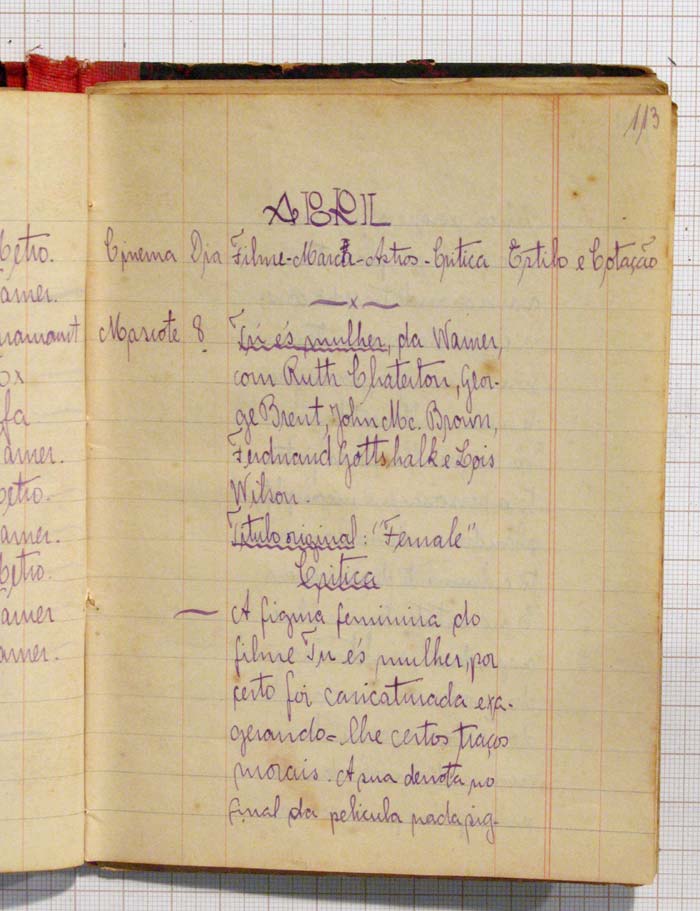 etro.
arner.
ramount
ox
fa
arner.
etro.
arner.
etro.
arner
arner.
113
ABRIL
Cinema Dia Filme-Marca-Astros-Critica Estilo e Cotação
x
Mascote 8 Tú és mulher, da Warner,
com Ruth Chaterton, Geor-
ge Brent, John Mc. Brown,
Ferdinand Gottshalk e Lois
Wilson.
Titulo original: "Female"
Critica
— A figura feminina do
filme Tu és mulher, por
certo foi caricaturada exa-
gerando=lhe certos traços
morais. A sua derrota no
final da pelicula nada sig-